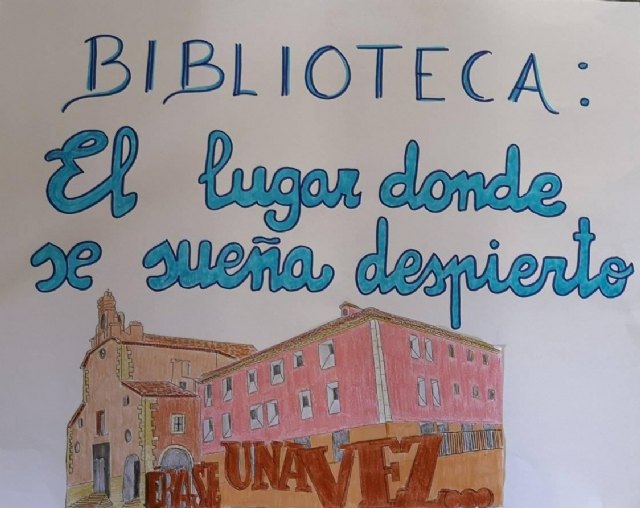 BIBLIOTECA:
El lugar donde
se sueña despierto
ERASE UNA VEZ...